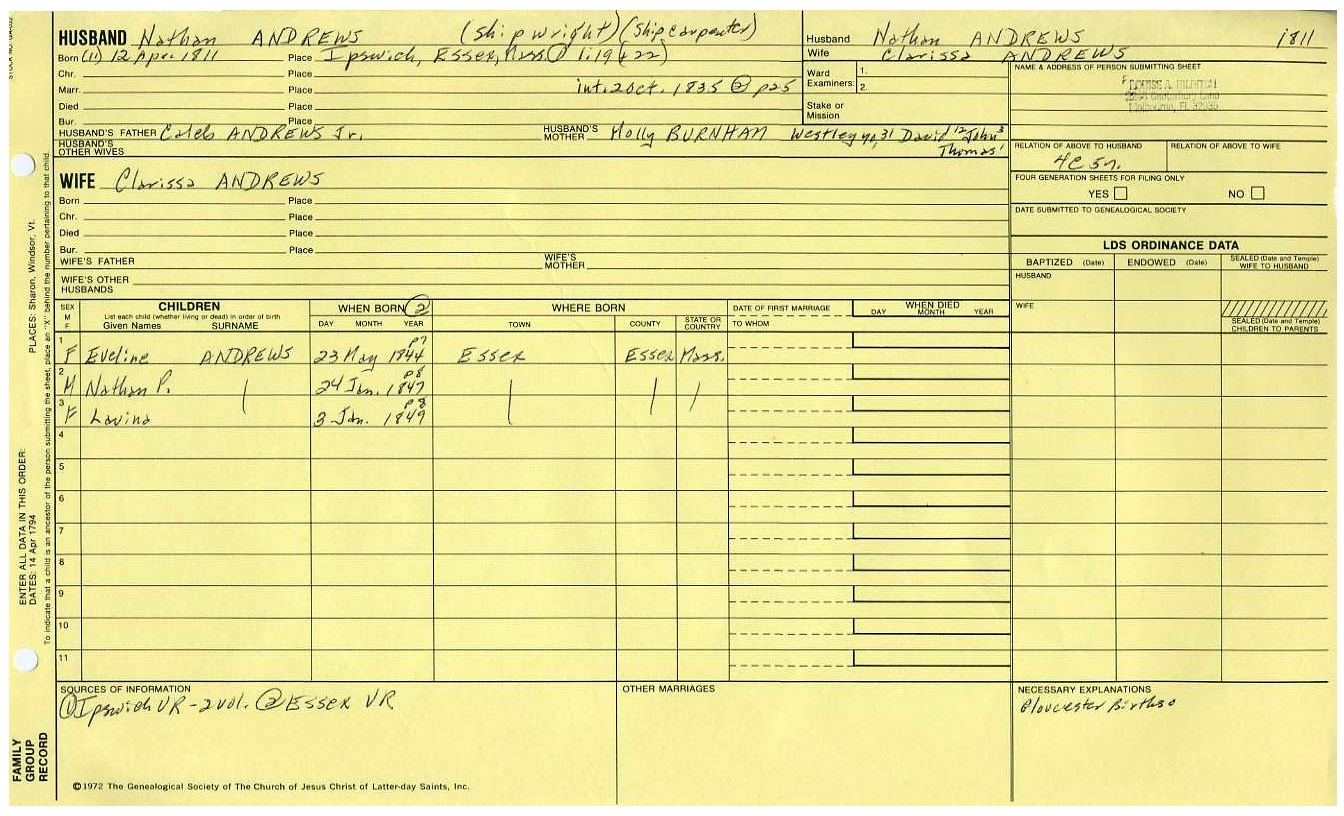 HUSBAND Nathan ANDREWS (Shipwright) (Ship carpenter)
Born (11) 12 Apr. 1811 Place Ipswich, Essex, Mass. ① 1:19 (+22)
Chr. Place
Marr. Place int. 2 Oct. 1835 ② p25
Died Place
Bur. Place
HUSBAND'S FATHER Caleb ANDREWS Jr. HUSBAND'S MOTHER Molly BURNHAM Westley 40, 31 David 12 John 3
HUSBAND'S OTHER WIVES Thomas 1
Husband Nathan ANDREWS 1811
Wife Clarissa ANDREWS
Ward Examiners: 1.
2.
Stake or Mission
NAME & ADDRESS OF PERSON SUBMITTING SHEET
Melbourne, FL
RELATION OF ABOVE TO HUSBAND RELATION OF ABOVE TO WIFE
4C 5r.
FOUR GENERATION SHEETS FOR FILING ONLY
YES NO
DATE SUBMITTED TO GENEALOGICAL SOCIETY
WIFE Clarissa ANDREWS
Born Place
Chr. Place
Died Place
Bur. Place
WIFE'S FATHER WIFE'S MOTHER
WIFE'S OTHER HUSBANDS
LDS ORDINANCE DATA
BAPTIZED (Date) ENDOWED (Date) SEALED (Date and Temple) WIFE TO HUSBAND
HUSBAND
WIFE
SEALED (Date and Temple) CHILDREN TO PARENTS
SEX M F
CHILDREN
List each child (whether living or dead) in order of birth
Given Names SURNAME
WHEN BORN ②
DAY MONTH YEAR
WHERE BORN
TOWN COUNTY STATE OR COUNTRY
DATE OF FIRST MARRIAGE
TO WHOM
WHEN DIED
DAY MONTH YEAR
1 F Eveline ANDREWS 23 May 1844 p7 Essex Essex Mass.
2 M Nathan P. 24 Jan. 1847 p8
3 F Lavina 3 Jan. 1849 p8
4
5
6
7
8
9
10
11
SOURCES OF INFORMATION
① Ipswich VR - 2 vol. ② Essex VR
OTHER MARRIAGES
NECESSARY EXPLANATIONS
Gloucester Births
©1972 The Genealogical Society of The Church of Jesus Christ of Latter-day Saints, Inc.
FAMILY GROUP RECORD
ENTER ALL DATA IN THIS ORDER:
DATES: 14 Apr 1794
PLACES: Sharon, Windsor, Vt.
To indicate that a child is an ancestor of the person submitting the sheet, place an "X" behind the number pertaining to that child.